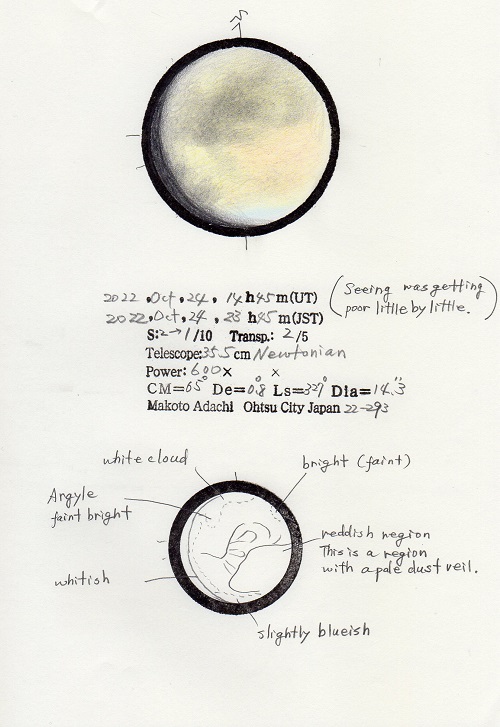 S
2022, Oct, 24, 14h45m(UT)
(Seeing was getting
poor little by little.)
2022, Oct, 24, 23h45m(JST)
S:2→1/10 Transp.: 2/5
Telescope:35.5cm Newtonian
Power: 600× ×
CM=65° De=0.8° Ls=327° Dia=14.3"
Makoto Adachi Ohtsu City Japan 22-293
white cloud
bright (faint)
Argyle
faint bright
reddish region
This is a region
with a pale dust veil.
whitish
slightly blueish